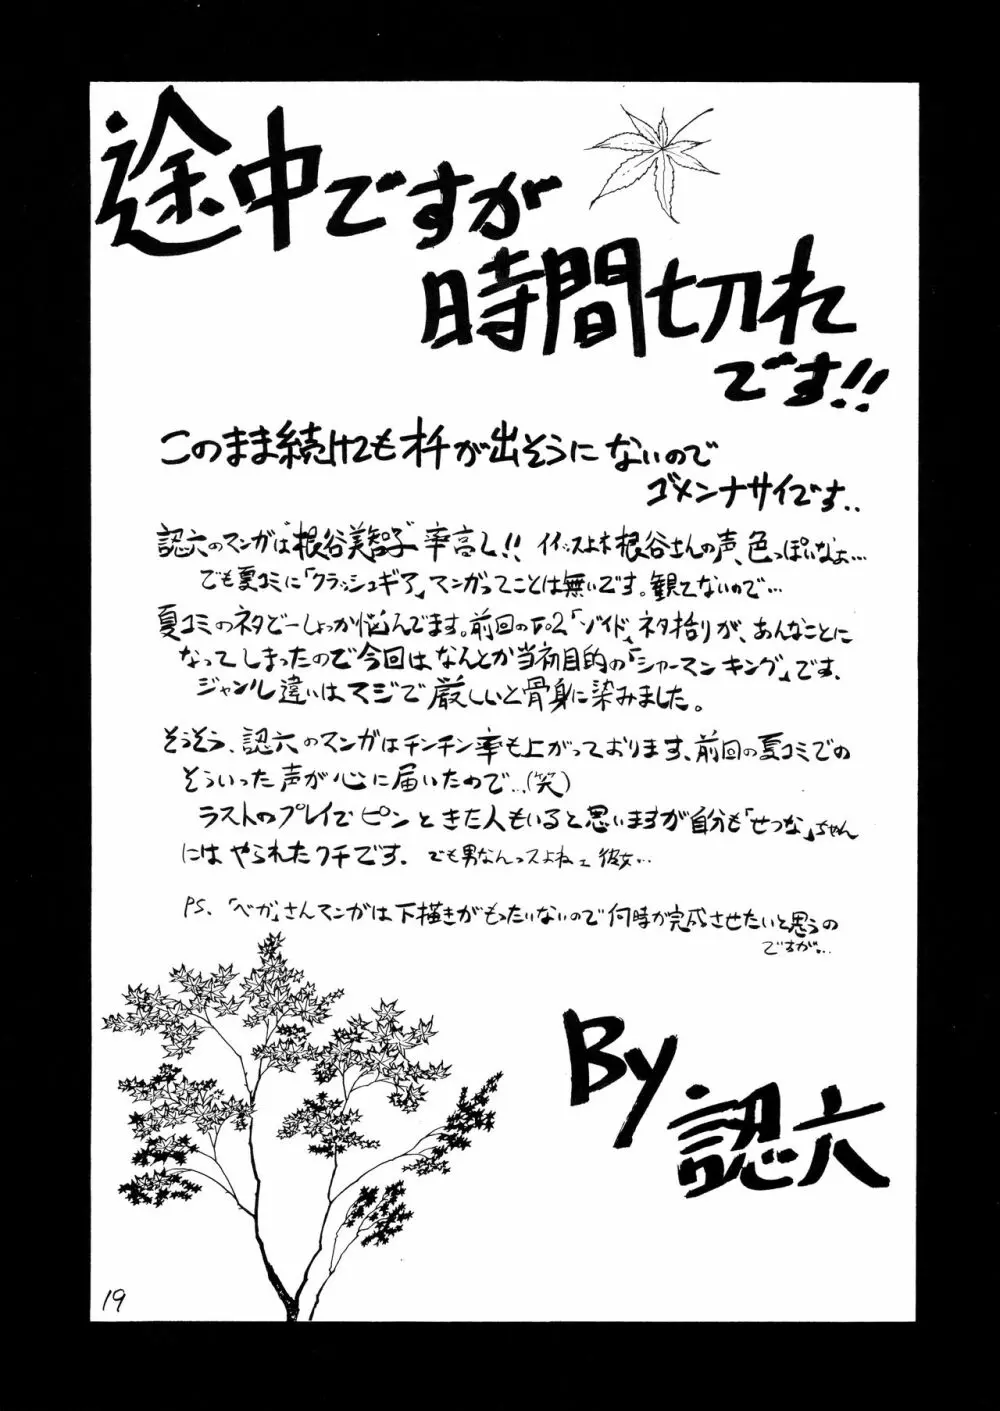 途中ですが
時間切れ
です!!
このまま続けてもオチが出そうにないので
ゴメンナサイです..
認六のマンガは"根谷美智子"率高し!! イイっスよネ根谷さんの声、色っぽいなぁ…
でも夏コミに「クラッシュギア」マンガってことは無いです。観てないので…
夏コミのネタどーしょっか悩んでます。前回のVo2「ゾイド」ネタ括りが、あんなことに
なってしまったので今回はなんとか当初目的の「シャーマンキング」です、
ジャンル違いはマジで厳しいと骨身に染みました。
そうそう、認六のマンガはチンチン率も上がっております、前回の夏コミでの
そういった声が心に届いたので…(笑)
ラストのプレイでピンときた人もいると思いますが自分も「せつな」ちゃん
にはやられたクチです. でも男なんっスよねェ彼女…
PS、「ベガ」さんマンガは下描きがもったいないので何時か完成させたいと思うの
ですが。…
By
認六
19